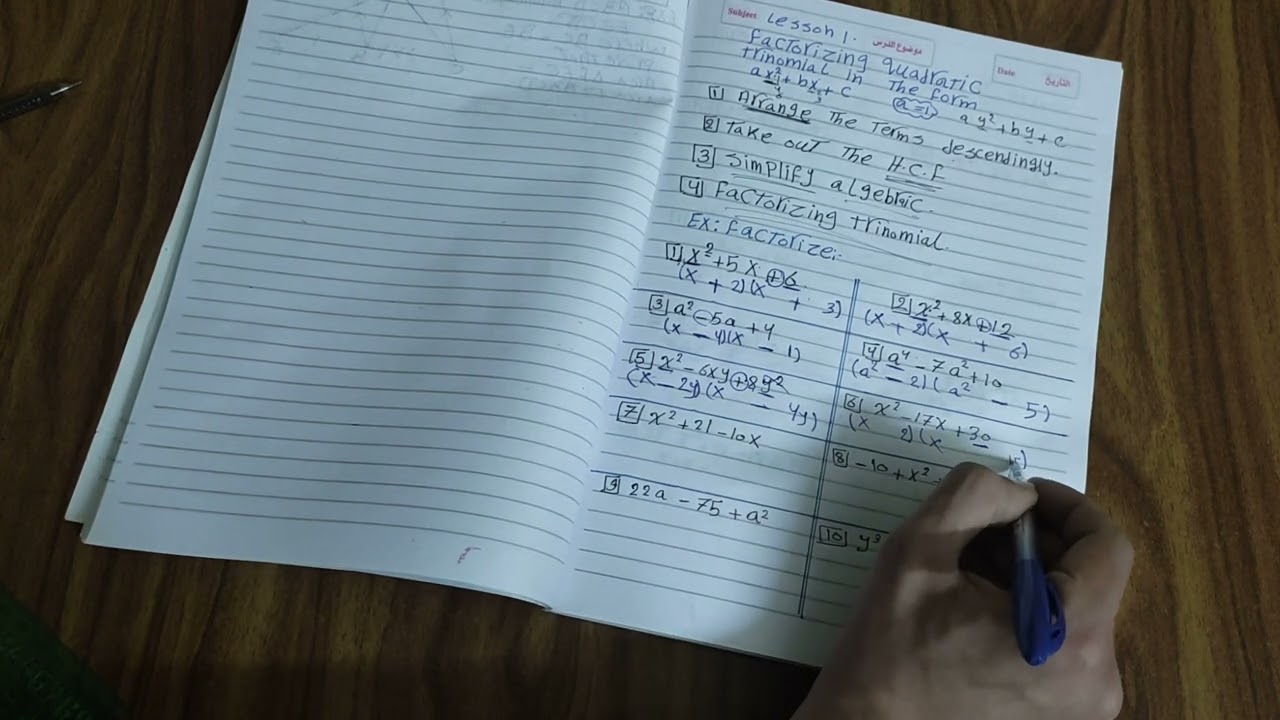 Subject Lesson 1. موضوع الدرس
Date التاريخ
Factorizing quadratic
trinomial in the form
ax²+bx+c (a=1) ay²+by+c
1 Arrange the terms descendingly.
2 Take out the H.C.F
3 Simplify algebraic.
4 Factorizing trinomial.
EX: Factorize:-
1 x²+5x+6
(x + 2)(x + 3)
2 x²+8x+12
(x + 2)(x + 6)
3 a²-5a+4
(x - 4)(x - 1)
4 a⁴-7a²+10
(a² - 2)(a² - 5)
5 x²-6xy+8y²
(x - 2y)(x - 4y)
6 x²-17x+30
(x 2)(x 15)
7 x²+21-10x
8 -10+x²
9 22a-75+a²
10 y³